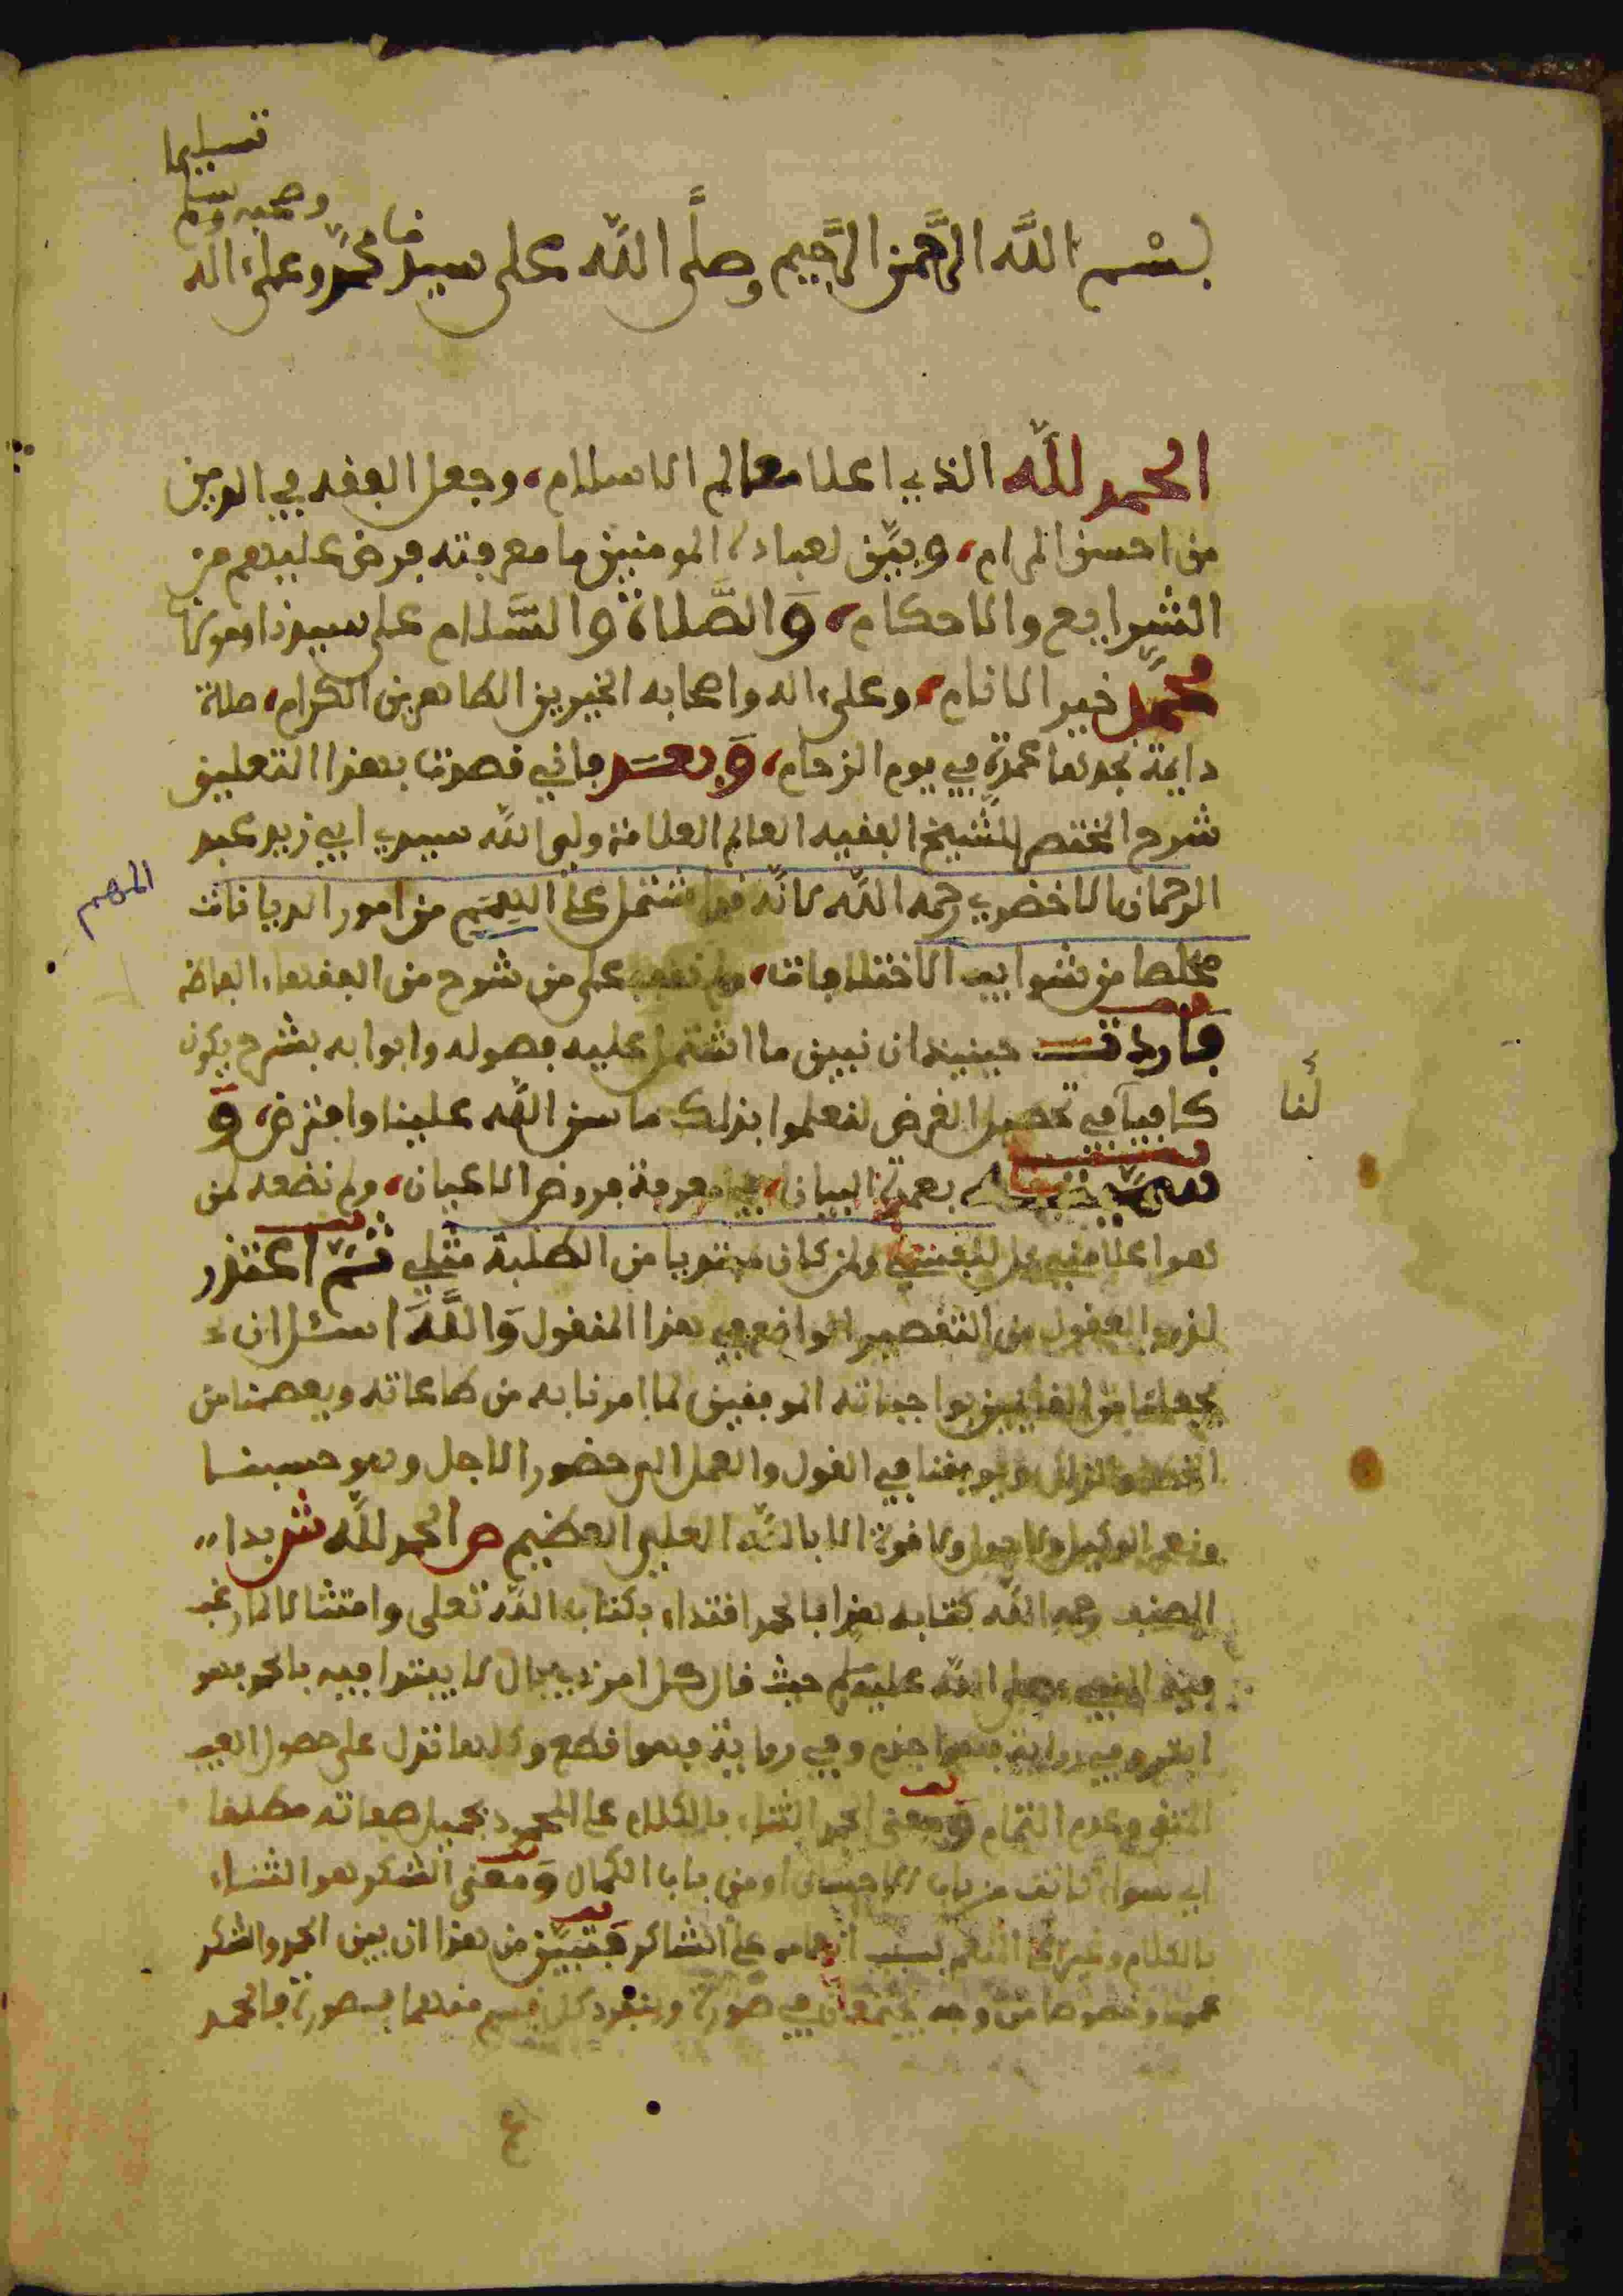 تسليما
وصحبه وسلم
بسم الله الرحمن الرحيم وصلى الله على سيدنا محمد وعلى اله
الحمد لله الذي اعلا معالم الاسلام، وجعل الفقه في الدين
من احسن المرام، وبين لعباده المومنين ما معرفته فرض عليهم من
الشرايع والاحكام، والصلاة والسلام على سيدنا ومولانا
محمد خير الانام، وعلى اله واصحابه الخيرين الطاهرين الكرام، صلاة
دايمة نجدها عمدة في يوم الزحام، وبعد فاني قصدت بهذا التعليق
شرح المختصر للشيخ الفقيه العالم العلامة ولي الله سيدي ابي زيد عبد
الرحمان الاخضري رحمه الله لانه قد اشتمل على المهم من امور الديانات
المهم
مخلصا من شوايب الاختلافات، ولم نقف على من شرح من الفقهاء الفاظه
فاردت حينيذ ان نبين ما اشتمل عليه فصوله وابوابه بشرح يكون
لنا
كافيا في تحصيل الغرض لنعلموا بذلك ما سن الله علينا وافترض، و
سميته بعمدة البيان، في معرفة فروض الاعيان، ولم نضعه لمن
هو اعلا مني بل لنفسي ولمن كان مبتديا من الطلبة مثلي ثم اعتذر
لذوي العقول من التقصير الواضع في هذا المنقول والله اسئل ان
يجعلنا من القايمين بواجباته الموفقين لما امرنا به من طاعاته ويعصمنا من
الخطا والزلل ويوفقنا في القول والعمل الى حضور الاجل وهو حسبنا
ونعم الوكيل ولا حول ولا قوة الا بالله العلي العظيم ص الحمد لله ش بدا
المصنف رحمه الله كتابه هذا بالحمد اقتداء بكتاب الله تعلى وامتثالا لما رغب
فيه النبي صلى الله عليه وسلم حيث قال كل امر ذي بال لا يبتدا فيه بالحمد فهو
ابتر وفي رواية فهو اجذم وفي رواية فهو اقطع وكلها تدل على حصول العيب
النقص وعدم التمام ومعنى الحمد الثناء بالكلام على المحمود بجميل صفاته مطلقا
اي سواء كانت من باب الاحسان او من باب الكمال ومعنى الشكر هو الثناء
بالكلام وغيره على المنعم بسبب انعامه على الشاكر فتبين من هذا ان بين الحمد والشكر
عموما وخصوصا من وجه يجتمعان في صورة وينفرد كل قسم منهما بصورة فالحمد